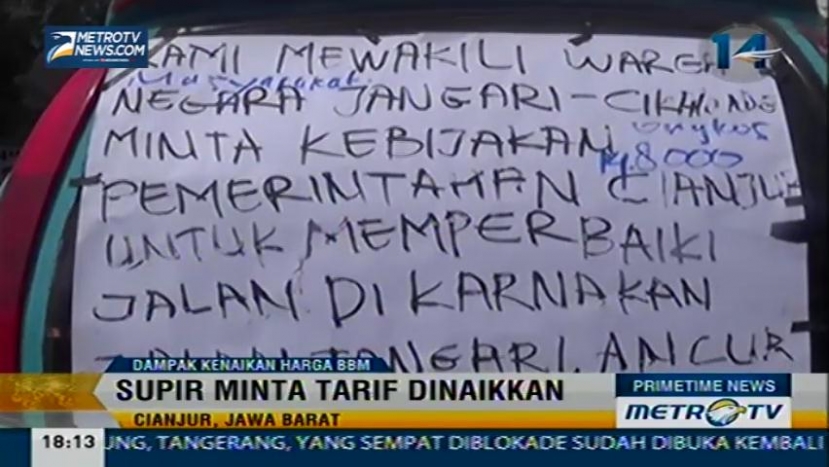 METROTV
NEWS.COM
14
KAMI MEWAKILI WARGA
Masyarakat
NEGARA JANGARI -
MINTA KEBIJAKAN
ongkos
Rp.8000
PEMERINTAHAN CIANJUR
UNTUK MEMPERBAIKI
JALAN DI KARNAKAN
JALAN JANGARI ANCUR
DAMPAK KENAIKAN HARGA BBM
SUPIR MINTA TARIF DINAIKKAN
CIANJUR, JAWA BARAT
PRIMETIME NEWS
METROTV
18:13
UNG, TANGERANG, YANG SEMPAT DIBLOKADE SUDAH DIBUKA KEMBALI